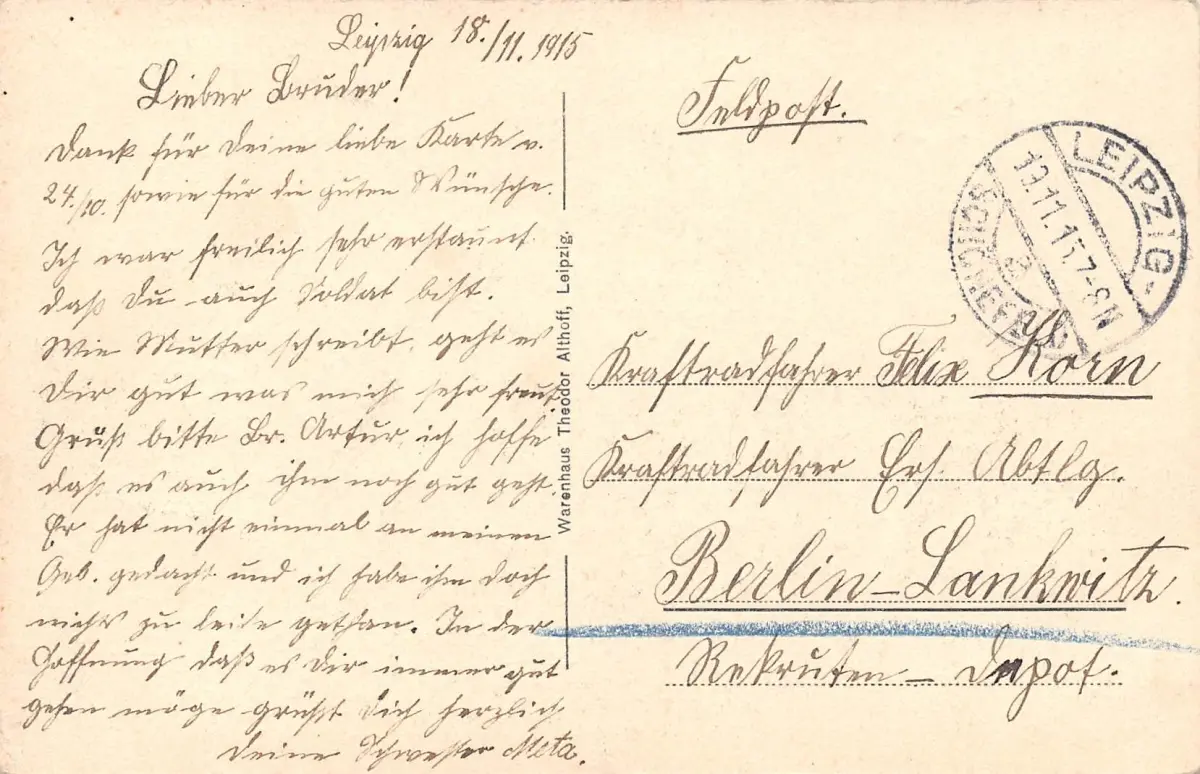 Leipzig 18./11. 1915
Lieber Bruder!
Dank für Deine liebe Karte v.
24./10. sowie für die guten Wünsche.
Ich war freilich sehr erstaunt
daß Du auch Soldat bist.
Wie Mutter schreibt, geht es
Dir gut was mich sehr freut.
Grüß bitte Br. Artur, ich hoffe
daß es auch ihm noch gut geht.
Er hat nicht einmal an meinen
Geb. gedacht und ich habe ihm doch
nichts zu leide gethan. In der
Hoffnung daß es Dir immer gut
gehen möge grüßt Dich herzlich
Deine Schwester Meta.
Warenhaus Theodor Althoff, Leipzig.
Feldpost.
LEIPZIG-
11.15.7-8N
Kraftradfahrer Felix Korn
Kraftradfahrer Ers. Abtlg.
Berlin-Lankwitz.
Rekruten-Depot.